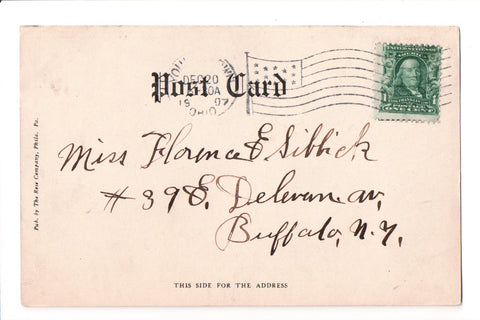 Post Card
DEC 20
1907
OHIO
Miss Florence E Sibbick
# 39 E. Delevan av,
Buffalo, N.Y.
THIS SIDE FOR THE ADDRESS
Pub. by The Rose Company, Phila. Pa.